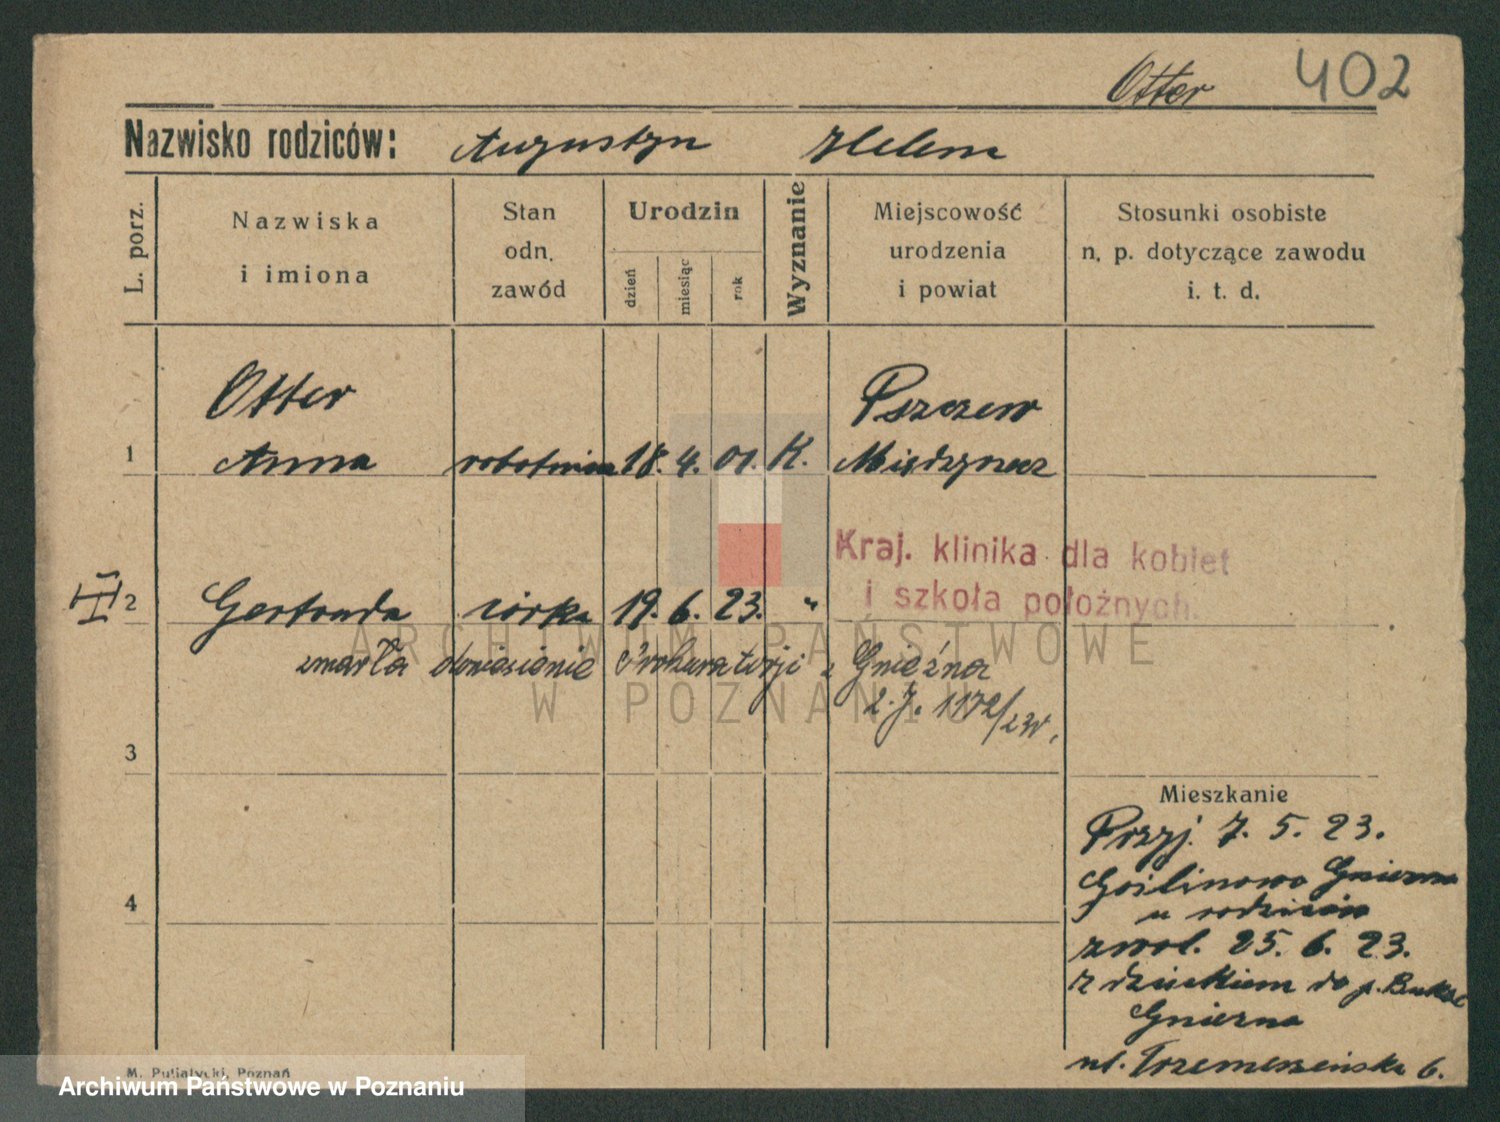 Otter 402
Nazwisko rodziców: Augustyn Helena
L. porz.
Nazwiska
i imiona
Stan
odn.
zawód
Urodzin
dzień
miesiąc
rok
Wyznanie
Miejscowość
urodzenia
i powiat
Stosunki osobiste
n. p. dotyczące zawodu
i. t. d.
Otter Pszczew
1 Anna robotnica 18. 4. 01. K. Międzyrzecz
Kraj. klinika dla kobiet
i szkoła położnych.
II 2 Gertruda córka 19. 6. 23. "
zmarła doniesienie Prokuratorji z Gnieźna
2. J. 1172/23
3
Mieszkanie
Przyj. 7. 5. 23.
Goślinowo Gniezno
u rodziców
4
zwol. 25. 6. 23.
z dzieckiem do p.
Gniezna
ul. Trzemeszeńska 6.
M. Putiatycki, Poznań
ARCHIWUM PAŃSTWOWE
W POZNANIU
Archiwum Państwowe w Poznaniu